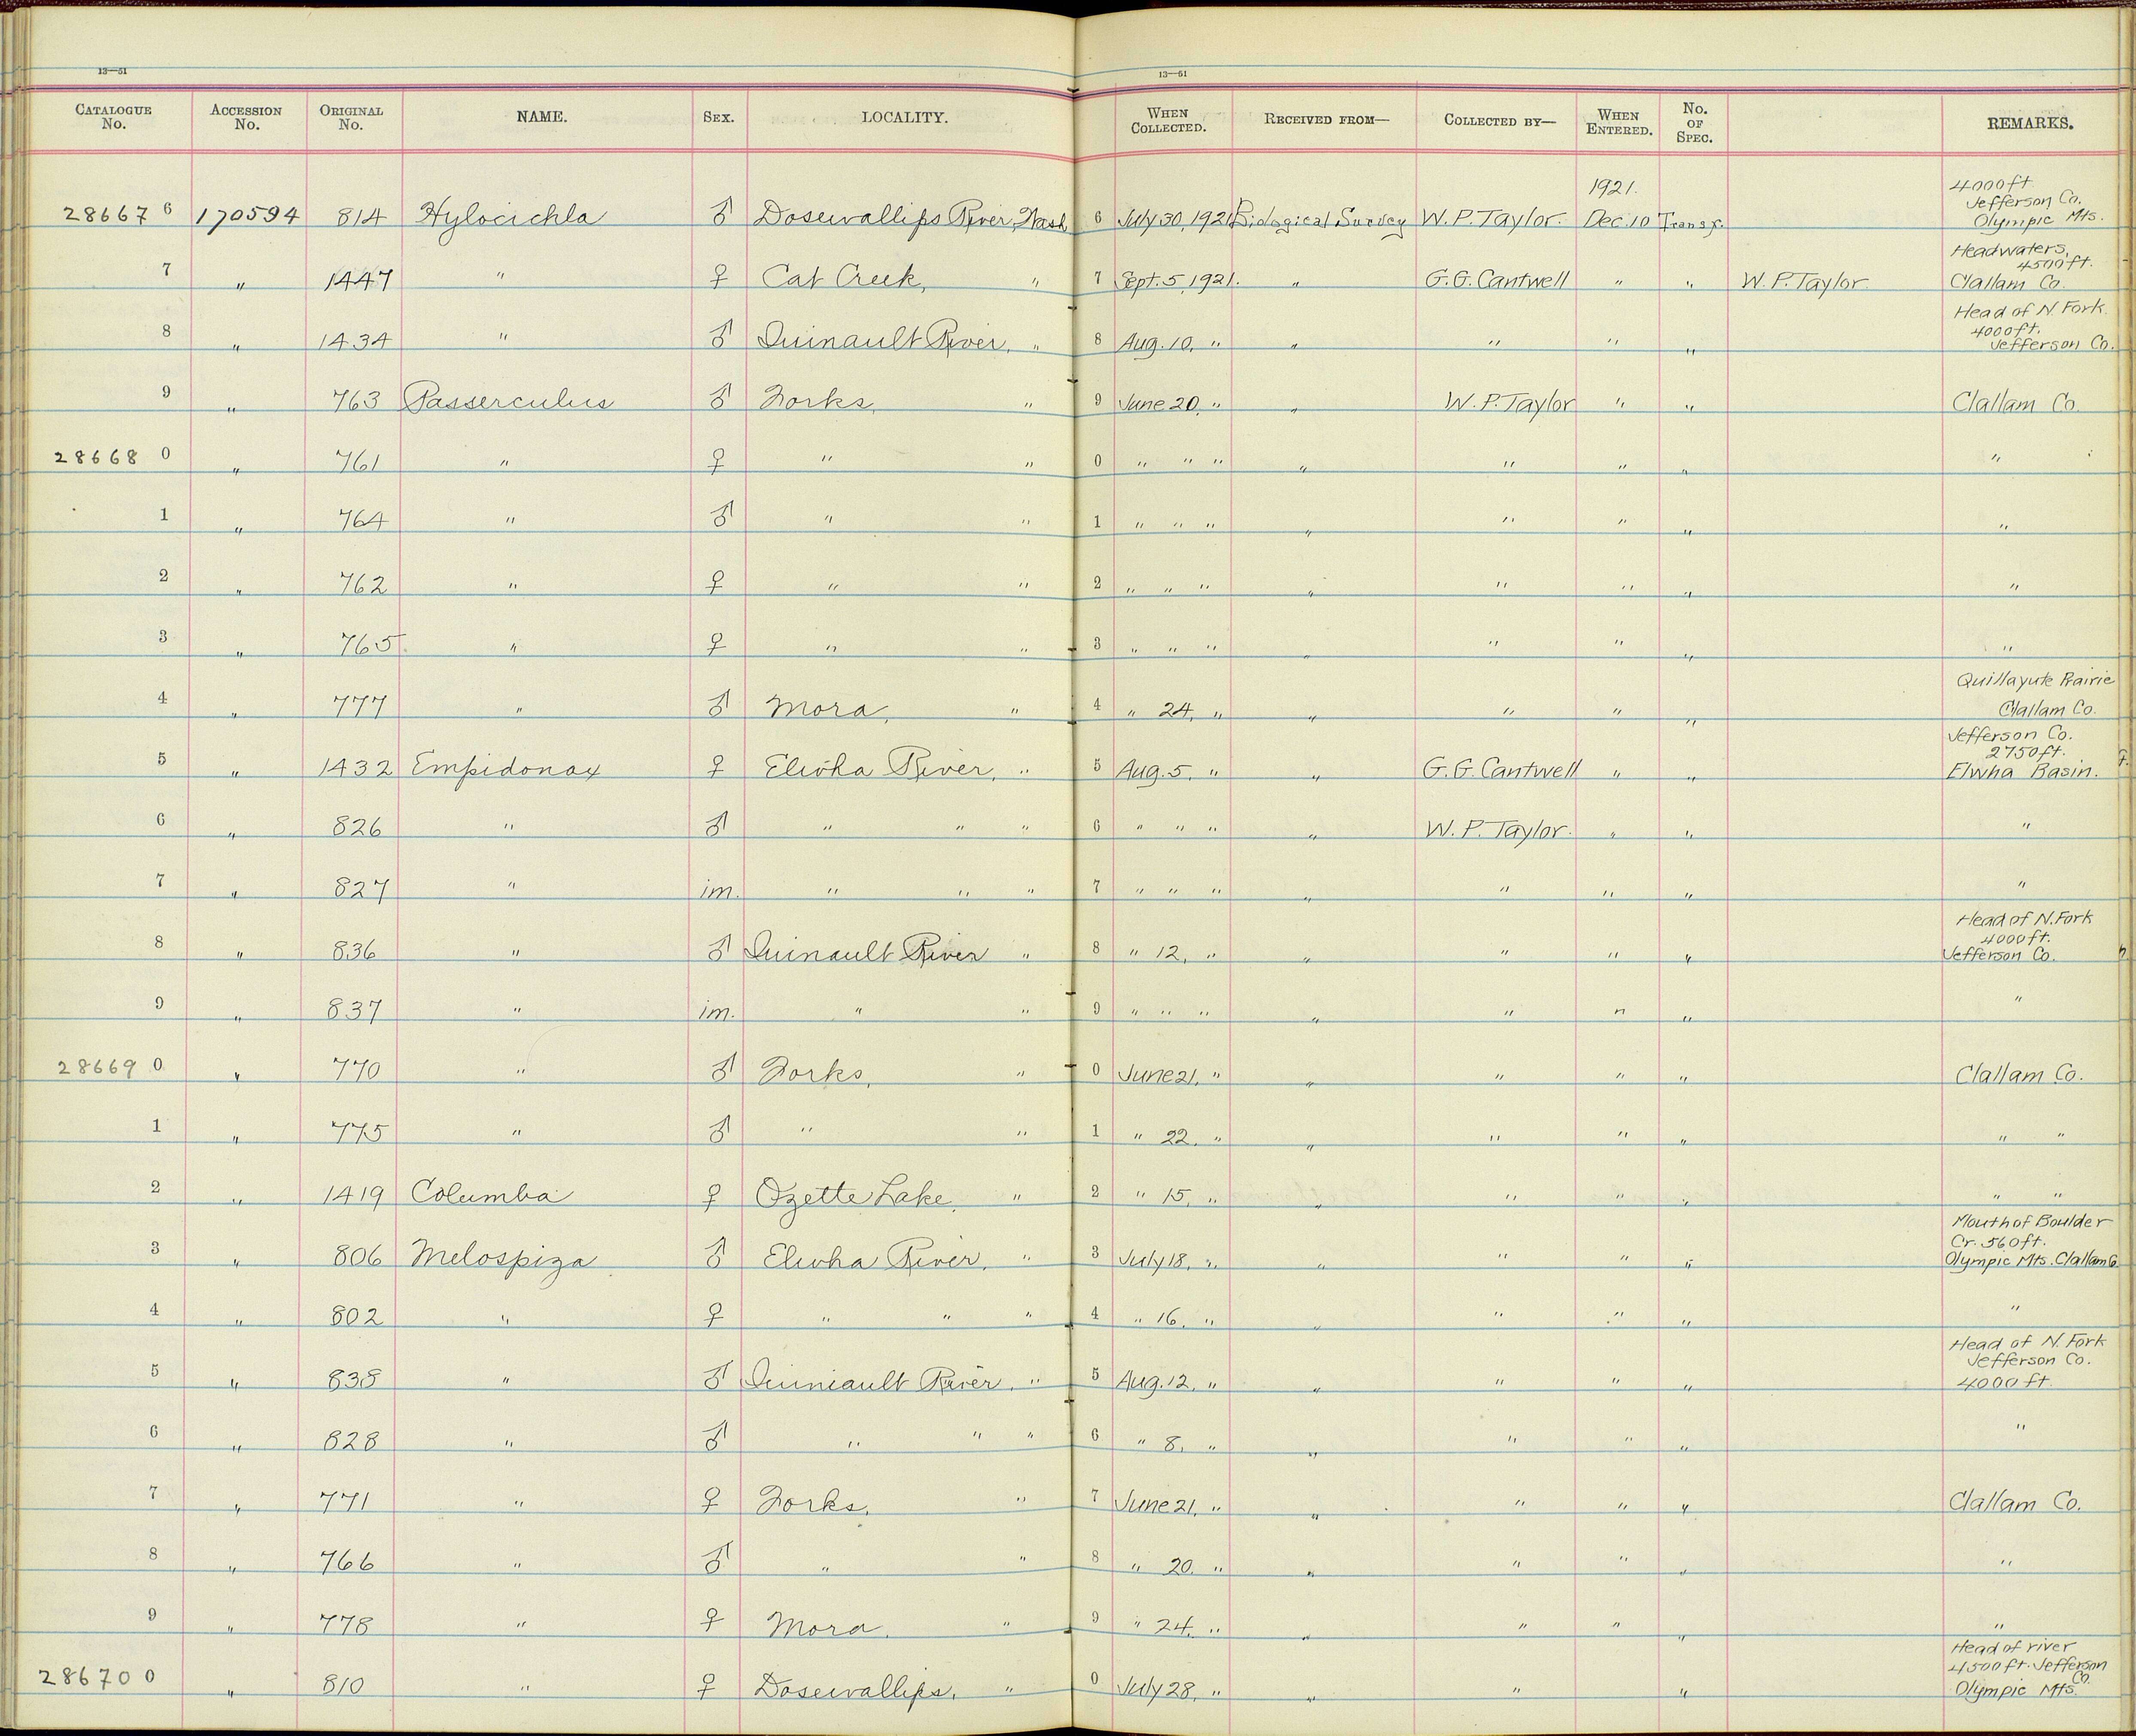 13—51
13—51
CATALOGUE No. ACCESSION No. ORIGINAL No. NAME. SEX. LOCALITY. WHEN COLLECTED. RECEIVED FROM— COLLECTED BY— WHEN ENTERED. No. OF SPEC. REMARKS.
1921. 4000 ft Jefferson Co.
28667 6 170594 814 Hylocichla ♂ Dosewallips River, Wash 6 July 30, 1921 Biological Survey W. P. Taylor. Dec. 10 Transf. Olympic Mts.
Headwaters, 4500 ft.
7 " 1447 " ♀ Cat Creek, " 7 Sept. 5, 1921. " G. G. Cantwell " " W. P. Taylor Clallam Co.
Head of N. Fork. 4000 ft.
8 " 1434 " ♂ Quinault River, " 8 Aug. 10, " " " " " Jefferson Co.
9 " 763 Passerculus ♂ Forks, " 9 June 20, " " W. P. Taylor " " Clallam Co.
28668 0 " 761 " ♀ " " 0 " " " " " " " "
1 " 764 " ♂ " " 1 " " " " " " " "
2 " 762 " ♀ " " 2 " " " " " " " "
3 " 765. " ♀ " " 3 " " " " " " " "
Quillayute Prairie
4 " 777 " ♂ Mora, " 4 " 24, " " " " " Clallam Co.
Jefferson Co. 2750 ft.
5 " 1432 Empidonax ♀ Elwha River, " 5 Aug. 5, " " G. G. Cantwell " " Elwha Basin.
6 " 826 " ♂ " " " 6 " " " " W. P. Taylor. " " "
7 " 827 " im. " " " 7 " " " " " " " "
Head of N. Fork 4000 ft.
8 " 836 " ♂ Quinault River " 8 " 12, " " " " " Jefferson Co.
9 " 837 " im. " " 9 " " " " " " " "
28669 0 " 770 " ♂ Forks, " 0 June 21, " " " " " Clallam Co.
1 " 775 " ♂ " " 1 " 22, " " " " " " "
2 " 1419 Columba ♀ Ozette Lake, " 2 " 15, " " " " " " "
Mouth of Boulder Cr. 560 ft.
3 " 806 Melospiza ♂ Elwha River, " 3 July 18, " " " " " Olympic Mts. Clallam Co.
4 " 802 " ♀ " " " 4 " 16, " " " " " "
Head of N. Fork Jefferson Co.
5 " 838 " ♂ Quiniault River, " 5 Aug. 12, " " " " " 4000 ft.
6 " 828 " ♂ " " " 6 " 8, " " " " " "
7 " 771 " ♀ Forks, " 7 June 21, " " " " " Clallam Co.
8 " 766 " ♂ " " 8 " 20, " " " " " "
9 " 778 " ♀ Mora, " 9 " 24, " " " " " "
Head of river 4500 ft. Jefferson Co.
28670 0 " 810 " ♀ Dosewallips, " 0 July 28, " " " " Olympic Mts.